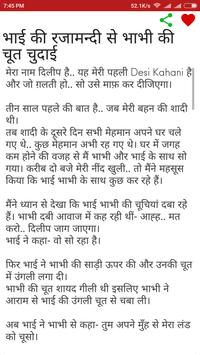 7:45 PM
52.1K/s
भाई की रजामन्दी से भाभी की
चूत चुदाई
मेरा नाम दिलीप है.. यह मेरी पहली Desi Kahani है
और जो ग़लती हो.. सो उसे माफ़ कर दीजिएगा।
तीन साल पहले की बात है.. जब मेरे बहन की शादी
थी।
तब शादी के दूसरे दिन सभी मेहमान अपने घर चले
गए थे.. कुछ मेहमान अभी रह गए थे। घर में जगह
कम होने की वजह से मैं भाभी और भाई के साथ सो
गया। करीब दो बजे मेरी नींद खुली.. तो मैंने महसूस
किया कि भाई भाभी के साथ कुछ कर रहे हैं।
मैंने ध्यान से देखा कि भाई भाभी की चूचियां दबा रहे
हैं। भाभी दबी आवाज में कह रही थीं- आह्ह.. मत
करो.. दिलीप जाग जाएगा।
भाई ने कहा- वो सो रहा है।
फिर भाई ने भाभी की साड़ी ऊपर की और उनकी चूत
में उंगली लगा दी।
भाभी की चूत शायद गीली थी इसलिए भाभी ने
आराम से भाई की उंगली चूत से चबा ली।
अब भाई ने भाभी से कहा- तुम अपने मुँह से मेरा लंड
को चूसो।